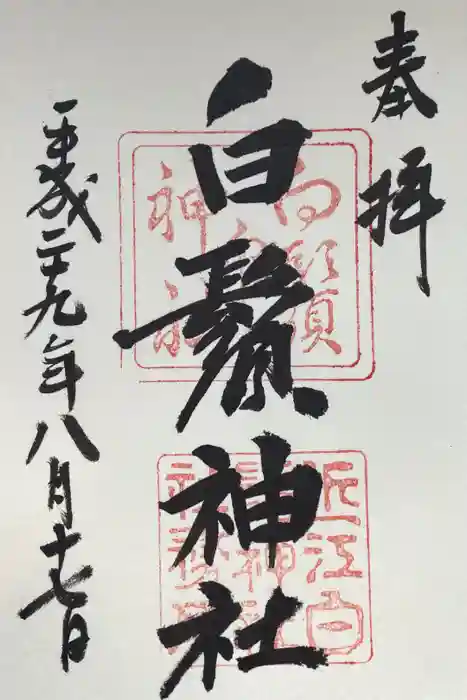 奉拝
白鬚神社
平成二十九年八月十七日
近江白
鬚神社
社務所